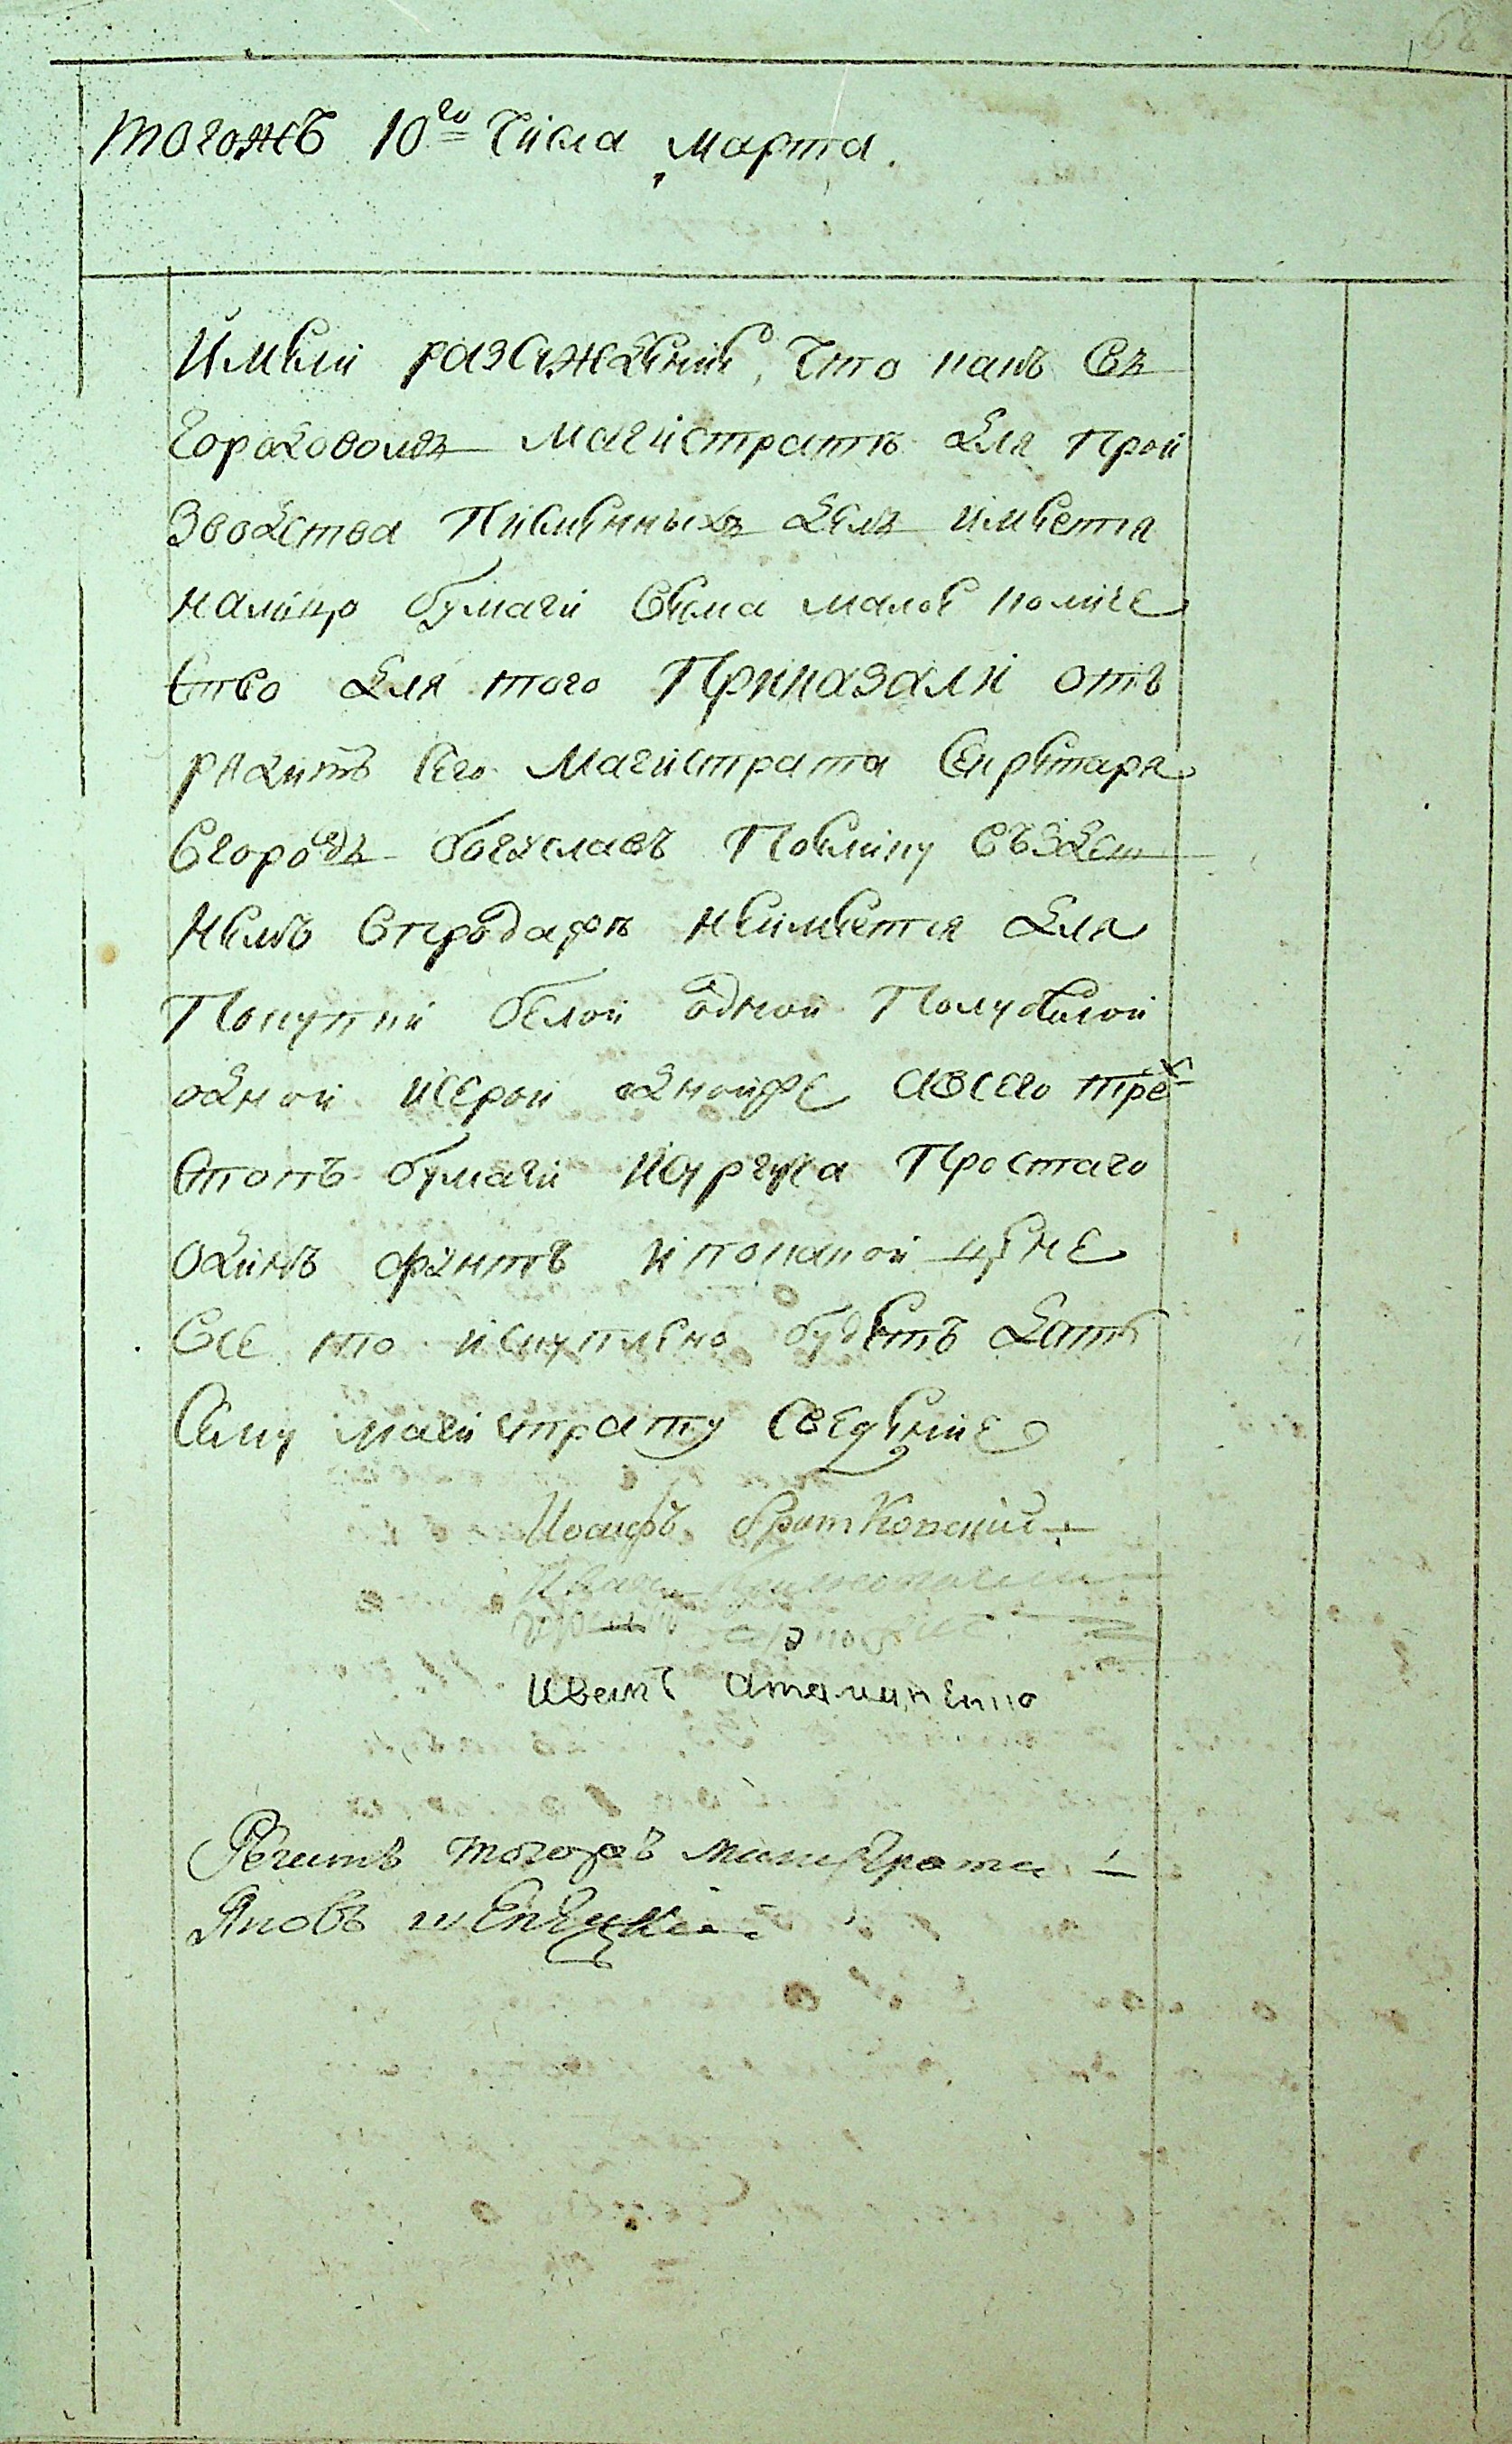 тогожъ 10го числа марта.
Имели разсуждение, что какъ въ
городовомъ магистрате для прои
зводства писменныхъ делъ имеетя
налицо бумаги весма малое количе
ство для того приказали отъ
рядить сего магистрата секретаря
вгородъ богуславъ поелику въздеш
немъ впродаже неимеется для
покупки белой одной полубелой
одной исерой однойже авсего трех
стопъ бумаги исургуча простаго
одинъ фунтъ ипокакой цене
все то искуплено будетъ дать
сему магистрату сведение
Иосифъ братковский
Иванъ атаманенко
Регентъ тогожъ магистрата
Яковъ